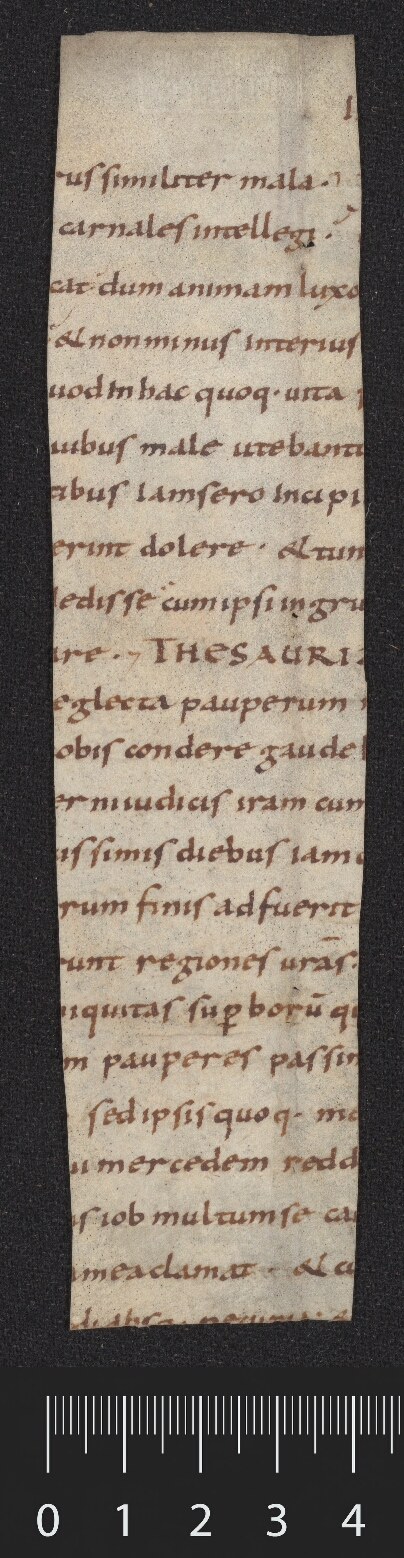 rus similiter mala.
carnales intellegi.
cat dum animam luxo
& non minus interius
uod In hac quoq· uita
uibus male utebantu
tibus Iam sero Incipi
erint dolere · & tun
edisse cum ipsi in gru
are · THESAURIZ
eglecta pauperum
obis condere gaude
erni iudicis iram cum
issimis diebus iam
rum finis adfuerit
runt regiones urãs·
iquitas sup̱borũ qu
m pauperes passim
sed ipsis quoq· me
u mercedem redd
s iob multum se ca
mea clamat · & cu
0 1 2 3 4